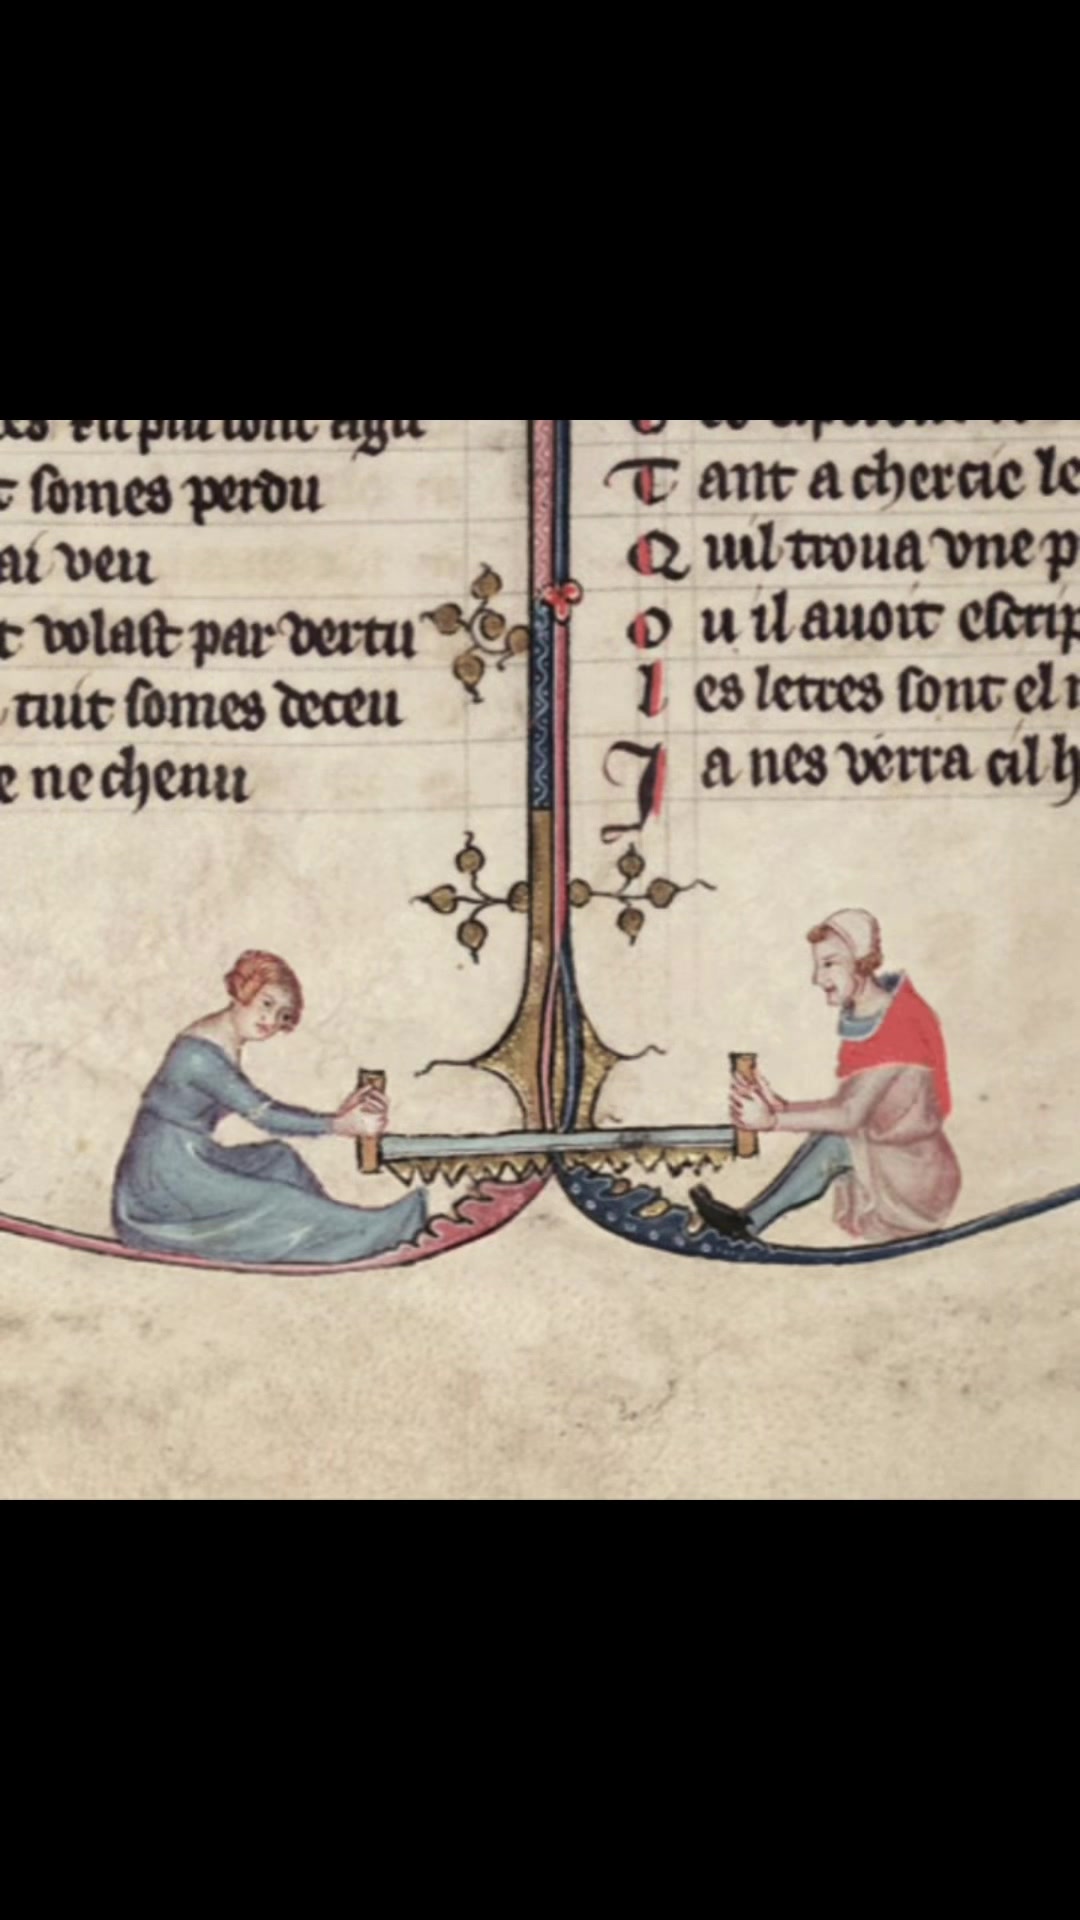 somes perdu
ai veu
t volast par vertu
tuit somes deceu
e ne chenu
Tant a chercie le
Quil troua vne p
Ou il auoit escrip
Les letres sont el
Ja nes verra cil h